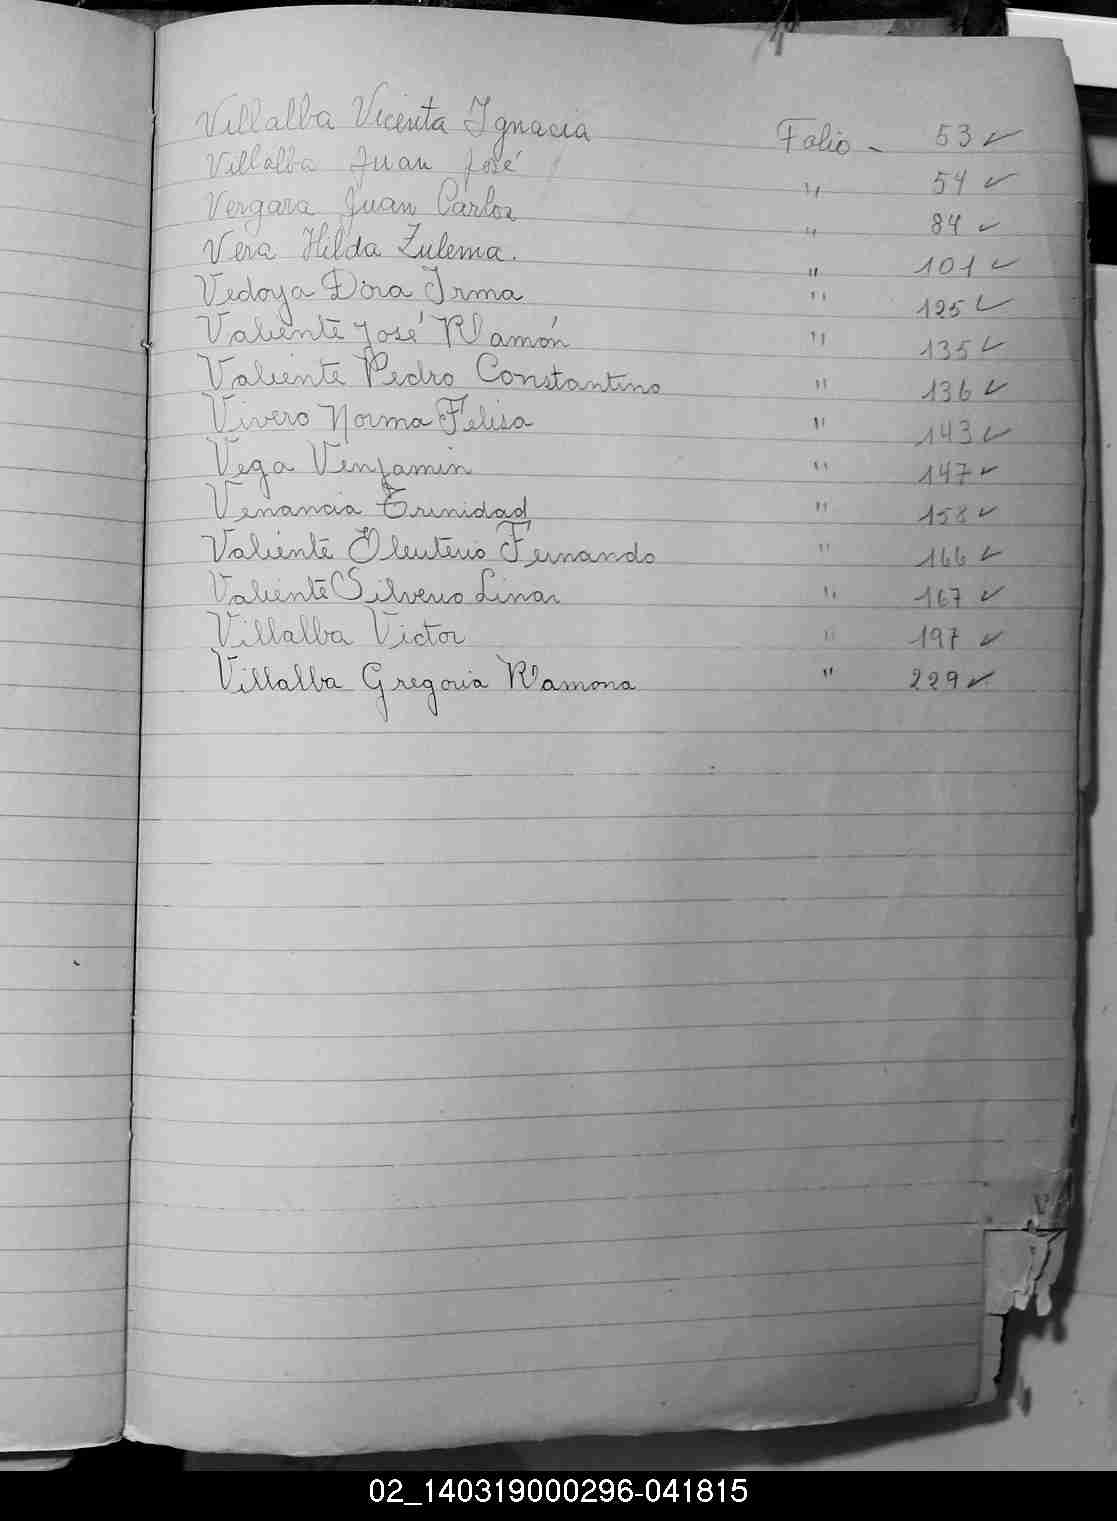 Villalba Vicenta Ignacia Folio - 53 ✓
Villalba Juan José " 54 ✓
Vergara Juan Carlos " 84 ✓
Vera Hilda Zulema. " 101 ✓
Vedoya Dora Irma " 125 ✓
Valiente José Ramón " 135 ✓
Valiente Pedro Constantino " 136 ✓
Vivero Norma Felisa " 143 ✓
Vega Venjamin " 147 ✓
Venancia Trinidad " 158 ✓
Valiente Eleuterio Fernando " 166 ✓
Valiente Silverio Linar " 167 ✓
Villalba Victor " 197 ✓
Villalba Gregoria Ramona " 229 ✓
02_140319000296-041815